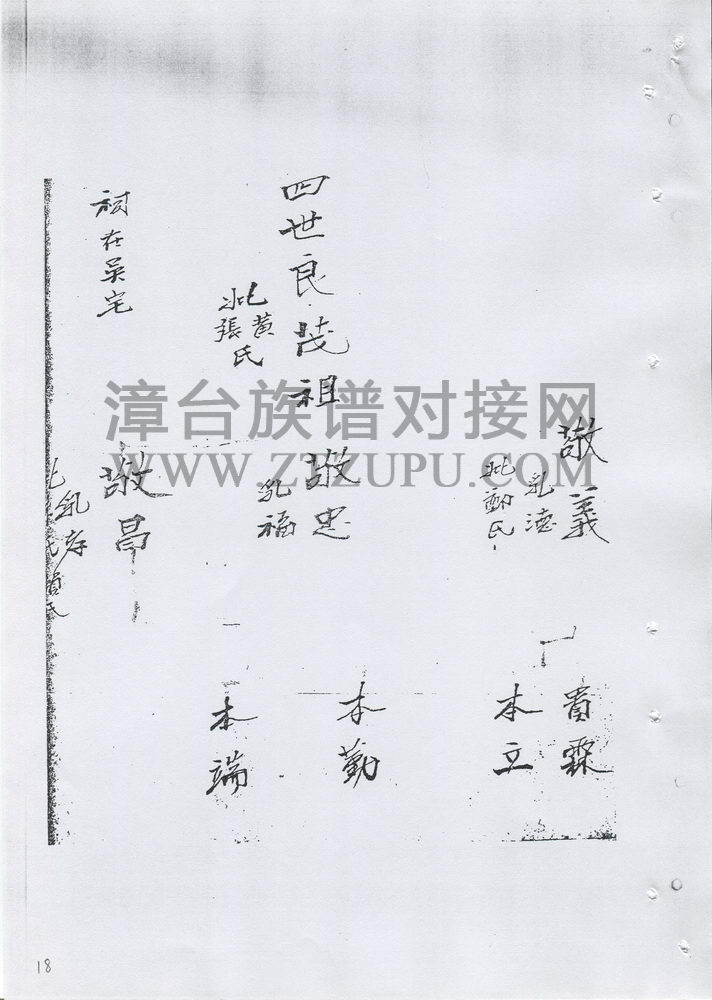 敬義
乳德
妣鄭氏
貴霖
本立
四世良茂祖
妣黃
張氏
敬忠
乳福
本勤
本端
祠在吳宅
敬昌
乳
漳台族谱对接网
WWW.ZTZUPU.COM
18